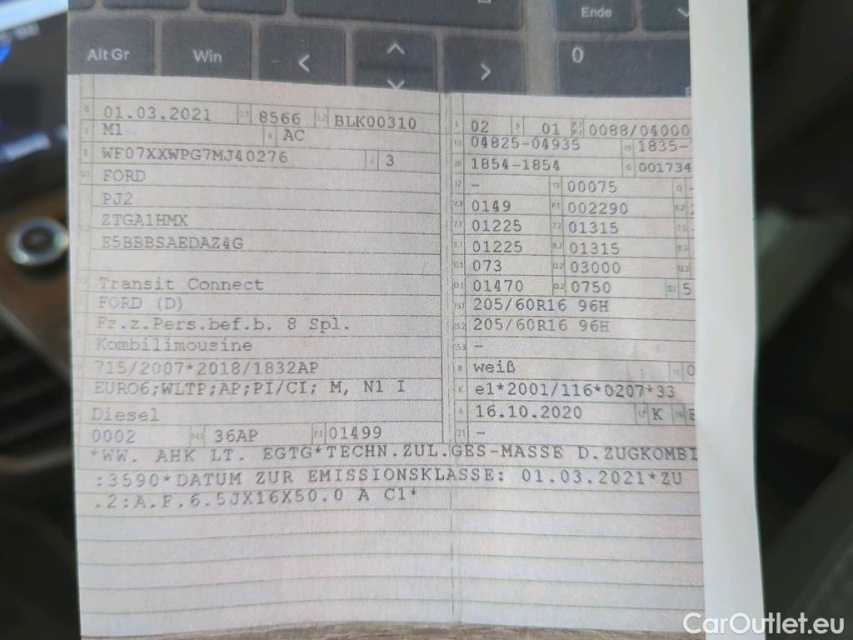 Ende
Alt Gr
Win
0
01.03.2021 8566 BLK00310
M1 AC
WF07XXWPG7MJ40276 3
FORD
PJ2
ZTGA1HMX
E5BBBSAEDAZ4G
Transit Connect
FORD (D)
Fz.z.Pers.bef.b. 8 Spl.
Kombilimousine
715/2007*2018/1832AP
EURO6;WLTP;AP;PI/CI; M, N1 I
Diesel
0002 36AP 01499
02 01 0088/04000
04825-04935 1835-
1854-1854 001734
- 00075
0149 002290
01225 01315
01225 01315
073 03000
01470 0750 5
205/60R16 96H
205/60R16 96H
-
weiß 0
e1*2001/116*0207*33
16.10.2020 K
-
*WW. AHK LT. EGTG*TECHN.ZUL.GES-MASSE D.ZUGKOMBI
:3590*DATUM ZUR EMISSIONSKLASSE: 01.03.2021*ZU
.2:A.F.6.5JX16X50.0 A C1*
CarOutlet.eu